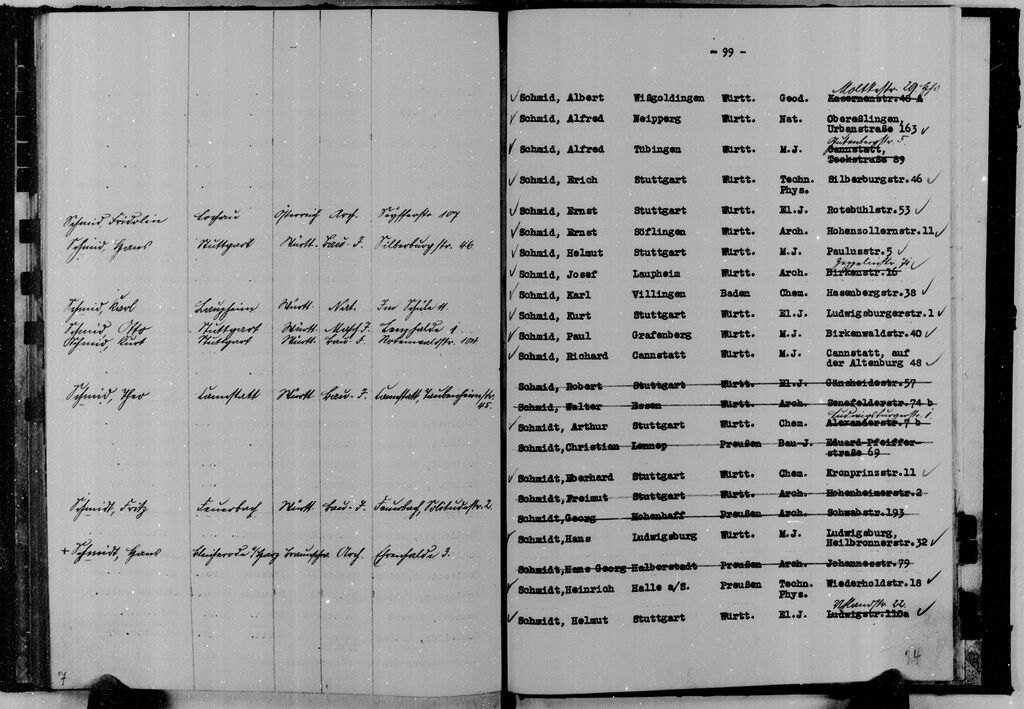 Schmid, Fridolin Lochau Österreich Arch. 107
Schmid, Hans Stuttgart Württ. Bau-J. Silberburgstr. 46
Schmid, Karl Laupheim Württ. Nat. Im Schüle 11
Schmid, Otto Stuttgart Württ. Math. Lenzhalde 1.
Schmid, Kurt Stuttgart Württ. Bau-J. Rotenwaldstr. 104
Schmid, Theo Cannstatt Württ. Bau-J. Cannstatt, Taubenheimstr.
45.
Schmidt, Fritz Feuerbach Württ. Bau-J. Feuerbach, Solitudestr. 2.
+ Schmidt, Hans Bleicherode Arch. Ehrenhalde 3.
7
- 99 -
Moltkestr. 29
Schmid, Albert Wißgoldingen Württ. Geod. Kasernenstr.48 A
Schmid, Alfred Neipperg Württ. Nat. Obereßlingen,
Urbanstraße 163
Gutenbergstr. 5
Schmid, Alfred Tübingen Württ. M.J. Cannstatt,
Teckstraße 89
Schmid, Erich Stuttgart Württ. Techn. Silberburgstr.46
Phys.
Schmid, Ernst Stuttgart Württ. El.J. Rotebühlstr.53
Schmid, Ernst Söflingen Württ. Arch. Hohenzollernstr.11
Schmid, Helmut Stuttgart Württ. M.J. Paulusstr.5
Zeppelinstr. 71
Schmid, Josef Laupheim Württ. Arch. Birkenstr.16
Schmid, Karl Villingen Baden Chem. Hasenbergstr.38
Schmid, Kurt Stuttgart Württ. El.J. Ludwigsburgerstr.1
Schmid, Paul Grafenberg Württ. M.J. Birkenwaldstr.40
Schmid, Richard Cannstatt Württ. M.J. Cannstatt, auf
der Altenburg 48
Schmid, Robert Stuttgart Württ. El.J. Gänsheidestr.57
Schmid, Walter Essen Württ. Arch. Senefelderstr.74 b
Ludwigsburgerstr. 1.
Schmidt, Arthur Stuttgart Württ. Chem. Alexanderstr.7 b
Schmidt,Christian Lennep Preußen Bau-J. Eduard-Pfeiffer-
straße 69
Schmidt,Eberhard Stuttgart Württ. Chem. Kronprinzstr.11
Schmidt,Freimut Stuttgart Württ. Arch. Hohenheimerstr.2
Schmidt,Georg Hohenhaff Preußen Arch. Schwabstr.193
Schmidt,Hans Ludwigsburg Württ. M.J. Ludwigsburg,
Heilbronnerstr.32
Schmidt,Hans Georg Halberstadt Preußen Arch. Johannesstr.79
Schmidt,Heinrich Halle a/S. Preußen Techn. Wiederholdstr.18
Phys.
Uhlandstr. 22.
Schmidt, Helmut Stuttgart Württ. El.J. Ludwigstr.110a